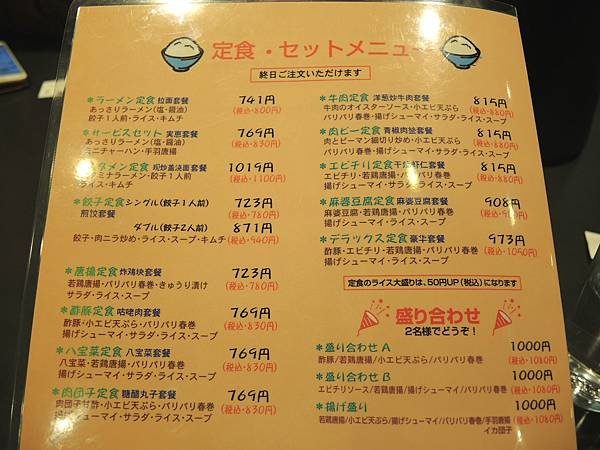 定食・セットメニュー
終日ご注文いただけます
*ラーメン定食 拉面套餐 741円
あっさりラーメン(塩・醤油) (税込・800円)
餃子1人前・ライス・キムチ
*サービスセット 実恵套餐 769円
あっさりラーメン(塩・醤油) (税込・830円)
ミニチャーハン・手羽唐揚
タメン定食 现炒盖浇面套餐 1019円
ミナラーメン・餃子1人前 (税込・1100円)
ライス・キムチ
*餃子定食 シングル(餃子1人前) 723円
煎饺套餐 (税込・780円)
ダブル(餃子2人前) 871円
餃子・肉ニラ炒め・ライス・スープ・キムチ (税込・940円)
*唐揚定食 炸鸡块套餐 723円
若鶏唐揚・パリパリ春巻・きゅうり漬け (税込・780円)
サラダ・ライス・スープ
*酢豚定食 咕咾肉套餐 769円
酢豚・小エビ天ぷら・パリパリ春巻 (税込・830円)
揚げシューマイ・サラダ・ライス・スープ
*八宝菜定食 八宝菜套餐 769円
八宝菜・若鶏唐揚・パリパリ春巻 (税込・830円)
揚げシューマイ・サラダ・ライス・スープ
*肉団子定食 糖醋丸子套餐 769円
肉団子甘酢・小エビ天ぷら・パリパリ春巻 (税込・830円)
揚げシューマイ・サラダ・ライス・スープ
*牛肉定食 洋葱炒牛肉套餐 815円
牛肉のオイスターソース・小エビ天ぷら (税込・880円)
パリパリ春巻・揚げシューマイ・サラダ・ライス・スープ
*肉ピー定食 青椒肉丝套餐 815円
肉とピーマン細切り炒め・小エビ天ぷら (税込・880円)
パリパリ春巻・揚げシューマイ・サラダ・ライス・スープ
*エビチリ定食 干烧虾仁套餐 815円
エビチリ・若鶏唐揚・パリパリ春巻 (税込・880円)
揚げシューマイ・サラダ・ライス・スープ
*麻婆豆腐定食 麻婆豆腐套餐 908
麻婆豆腐・若鶏唐揚・パリパリ春巻
揚げシューマイ・サラダ・ライス・スープ
*デラックス定食 豪华套餐 973円
酢豚・エビチリ・若鶏唐揚・パリパリ春巻 (税込・1050円)
揚げシューマイ・サラダ・ライス・スープ
定食のライス大盛りは、50円UP(税込)になります
盛り合わせ
2名様でどうぞ!
*盛り合わせ A 1000円
酢豚/若鶏唐揚/小エビ天ぷら/パリパリ春巻 (税込・1080円)
*盛り合わせ B 1000円
エビチリソース/若鶏唐揚/揚げシューマイ/パリパリ春巻 (税込・1080円)
*揚げ盛り 1000円
若鶏唐揚/小エビ天ぷら/揚げシューマイ/パリパリ春巻/手羽唐揚 (税込・1080円)
イカ団子